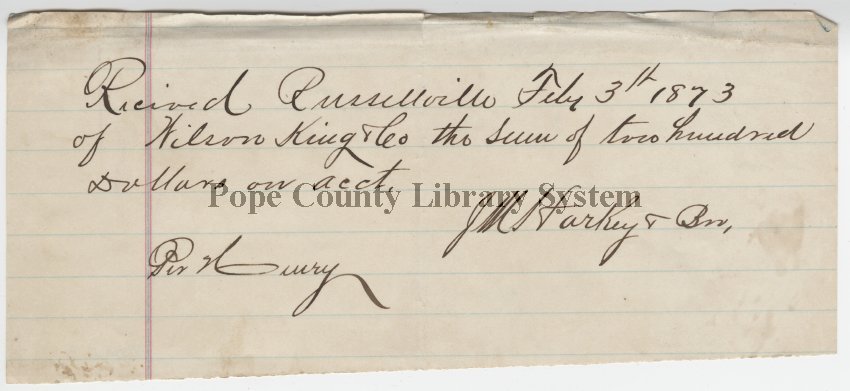 Recived Russellville Feby 3th 1873
of Wilson King & Co the Sum of two hundred
Dollars on acct.
Pope County Library System
J M Harkey & Bro,
Per Henry